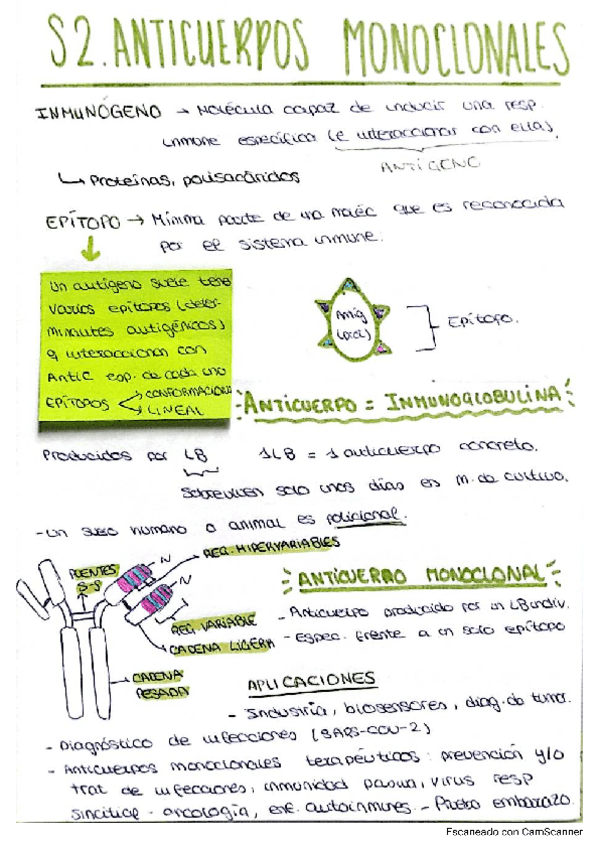 S2. ANTICUERPOS MONOCLONALES
INMUNÓGENO → Molécula capaz de inducir una resp.
inmune específica (e interaccionar con ella).
ANTÍGENO
↳ Proteínas, polisacáridos
EPÍTOPO → Mínima parte de una moléc que es reconocida
por el sistema inmune.
Un antígeno suele tener
varios epítopos (deter-
minantes antigénicos)
q interaccionan con
Antic esp. de cada uno
EPÍTOPOS CONFORMACIONAL
LINEAL
Antig
Epítopo.
ANTICUERPO = INMUNOGLOBULINA
Producidos por LB 1LB = 1 anticuerpo concreto.
Sobreviven solo unos días en m. de cultivo.
- Un suero humano o animal es policlonal.
PUENTES
S-S
N
N
REG. HIPERVARIABLES
REG. VARIABLE
CADENA LIGERA
CADENA
PESADA
ANTICUERPO MONOCLONAL
- Anticuerpo producido por un LB indiv.
- Espec. frente a un solo epítopo
APLICACIONES
- Industria, biosensores, diag. de tumor.
- Diagnóstico de infecciones (SARS-COV-2)
- Anticuerpos monoclonales terapéuticos: prevención y/o
trat de infecciones, inmunidad pasiva, virus resp
sincitial - oncología, enf. autoinmunes. - Prueba embarazo.
Escaneado con CamScanner